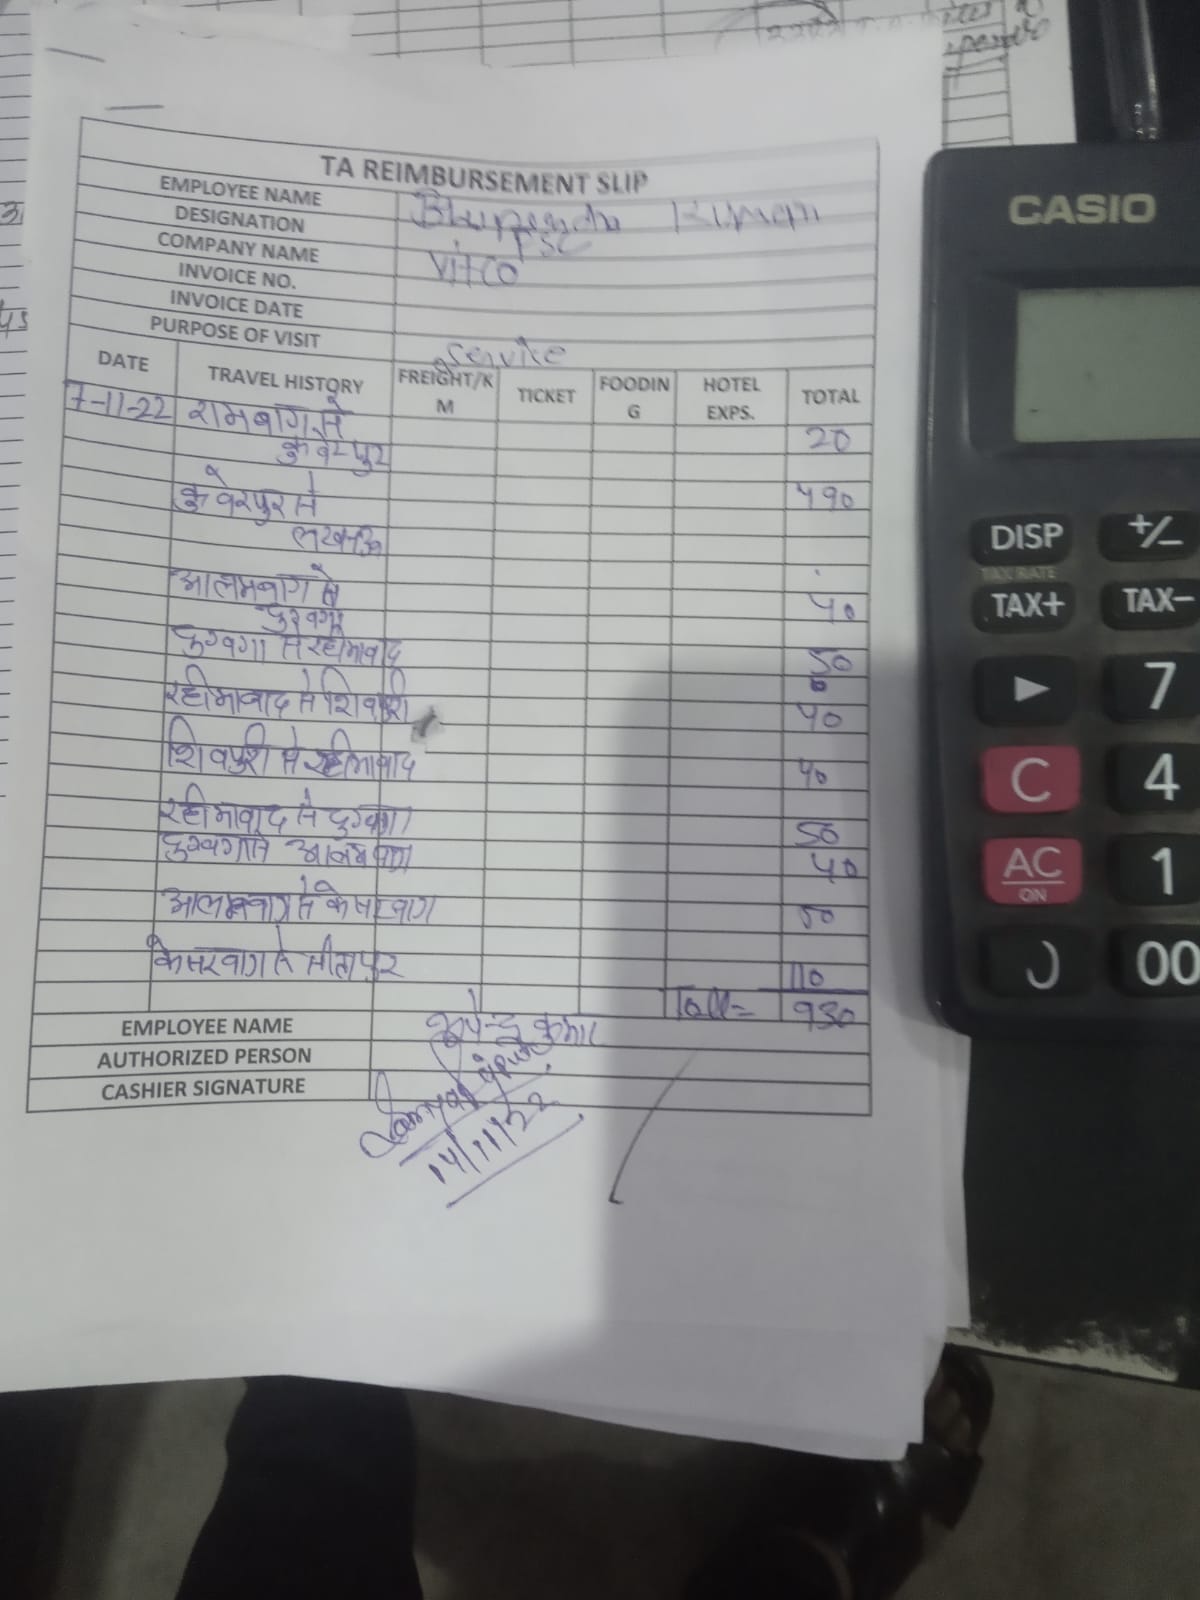 TA REIMBURSEMENT SLIP
EMPLOYEE NAME Bhupendra Kumar
DESIGNATION TSC
COMPANY NAME Vitco
INVOICE NO.
INVOICE DATE
PURPOSE OF VISIT Service
DATE TRAVEL HISTORY FREIGHT/KM TICKET FOODING HOTEL EXPS. TOTAL
7-11-22 रामबाग से 20
कुबेरपुर
कुबेरपुर से 490
लखनऊ
आलमबाग से 40
दुबग्गा
दुबग्गा से रहीमाबाद 50
रहीमाबाद से शिवपुरी 40
शिवपुरी से रहीमाबाद 40
रहीमाबाद से दुबग्गा 50
दुबग्गा से आलमबाग 40
आलमबाग से केसरबाग 50
केसरबाग से सीतापुर 110
930
EMPLOYEE NAME भूपेन्द्र कुमार
AUTHORIZED PERSON
CASHIER SIGNATURE
14/11/22
CASIO
DISP +/−
TAX RATE
TAX+ TAX−
7
C 4
AC 1
ON
00